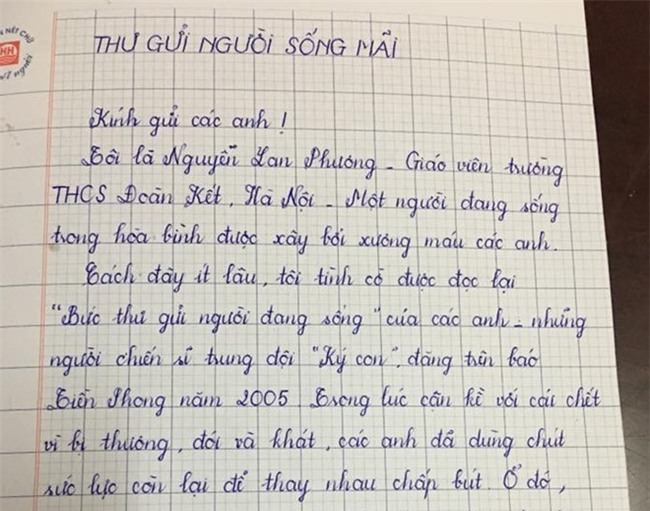 NÉT CHỮ
HH
NẾT NGƯỜI
THƯ GỬI NGƯỜI SỐNG MÃI
Kính gửi các anh !
Tôi là Nguyễn Lan Phương - Giáo viên trường
THCS Đoàn Kết, Hà Nội - Một người đang sống
trong hòa bình được xây bởi xương máu các anh.
Cách đây ít lâu, tôi tình cờ được đọc lại
"Bức thư gửi người đang sống" của các anh - những
người chiến sĩ trung đội "Ký con", đăng trên báo
Tiền Phong năm 2005. Trong lúc cận kề với cái chết
vì bị thương, đói và khát, các anh đã dùng chút
sức lực còn lại để thay nhau chấp bút. Ở đó,